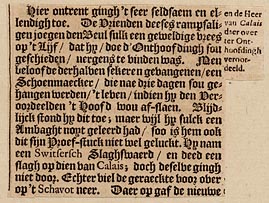 Hier ontrent gingh 't seer seldsaem en el-
lendigh toe. De Vrienden deses rampsali-
gen joegen den Beul sulk een geweldige vrees
op 't Lijf / dat hy / doe d'Onthoofdingh sou
geschieden / nergens te vinden was. Men
beloofde derhalven sekeren gevangenen / een
Schoenmaecker / die nae drie dagen sou ge-
hangen werden / 't leven / indien hy den Ver-
oordeelden 't Hoofd wou af-slaen. Blijd-
lijck stond hy dit toe; maer wijl hy sulck een
Ambaght noyt geleerd had / soo is hem ook
dit sijn Proef-stuck niet wel geluckt. Hy nam
een Switsersch Slaghswaerd / en deed een
slagh op dien van Calais; doch deselve gingh
niet door. Echter viel de geraeckte voor over
op 't Schavot neer. Daer op gaf de nieuwe
en de Heer
van Calais
der over
ter Ont-
hoofdingh
veroor-
deeld.